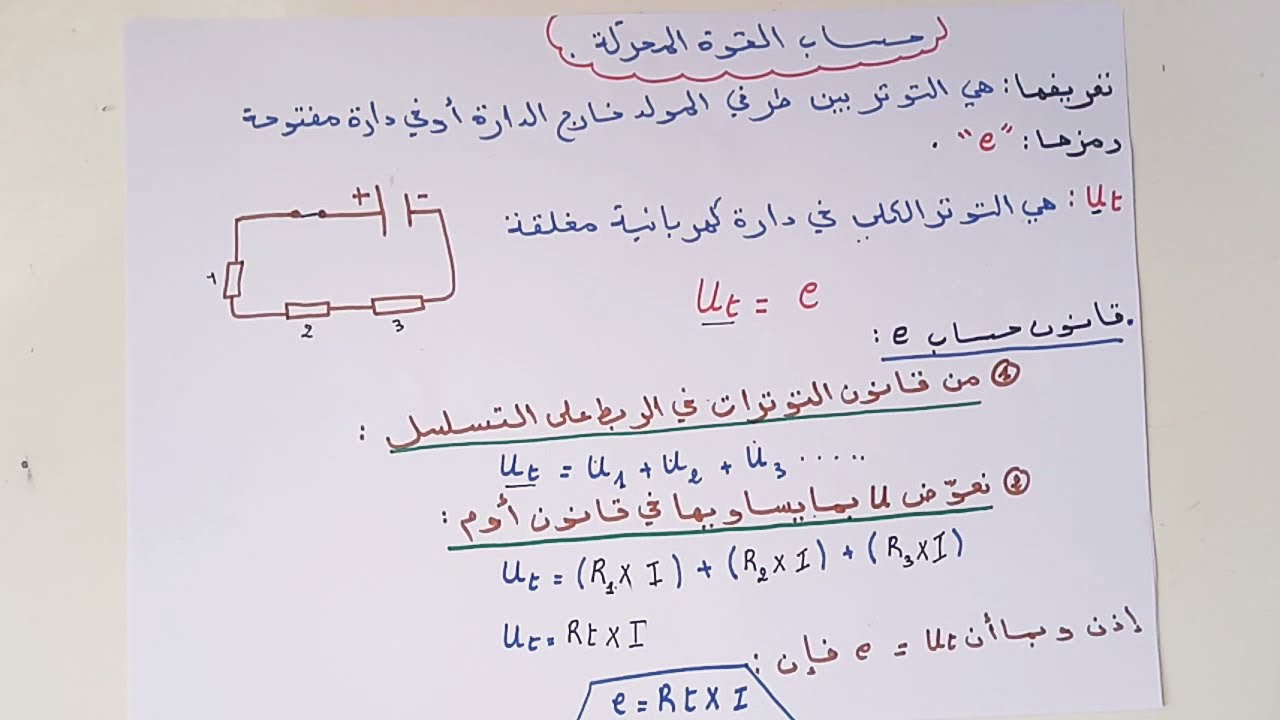 حساب القوة المحركة .
تعريفها : هي التوتر بين طرفي المولد خارج الدارة أو في دارة مفتوحة
رمزها : "e" .
Ut : هي التوتر الكلي في دارة كهربائية مغلقة
+ -
1
2 3
Ut = e
. قانون حساب e :
① من قانون التوترات في الربط على التسلسل :
Ut = U1 + U2 + U3 .....
② نعوّض U بما يساويها في قانون أوم :
Ut = (R1 x I) + (R2 x I) + (R3 x I)
Ut = Rt x I
إذن وبما أن Ut = e فإن :
e = Rt x I